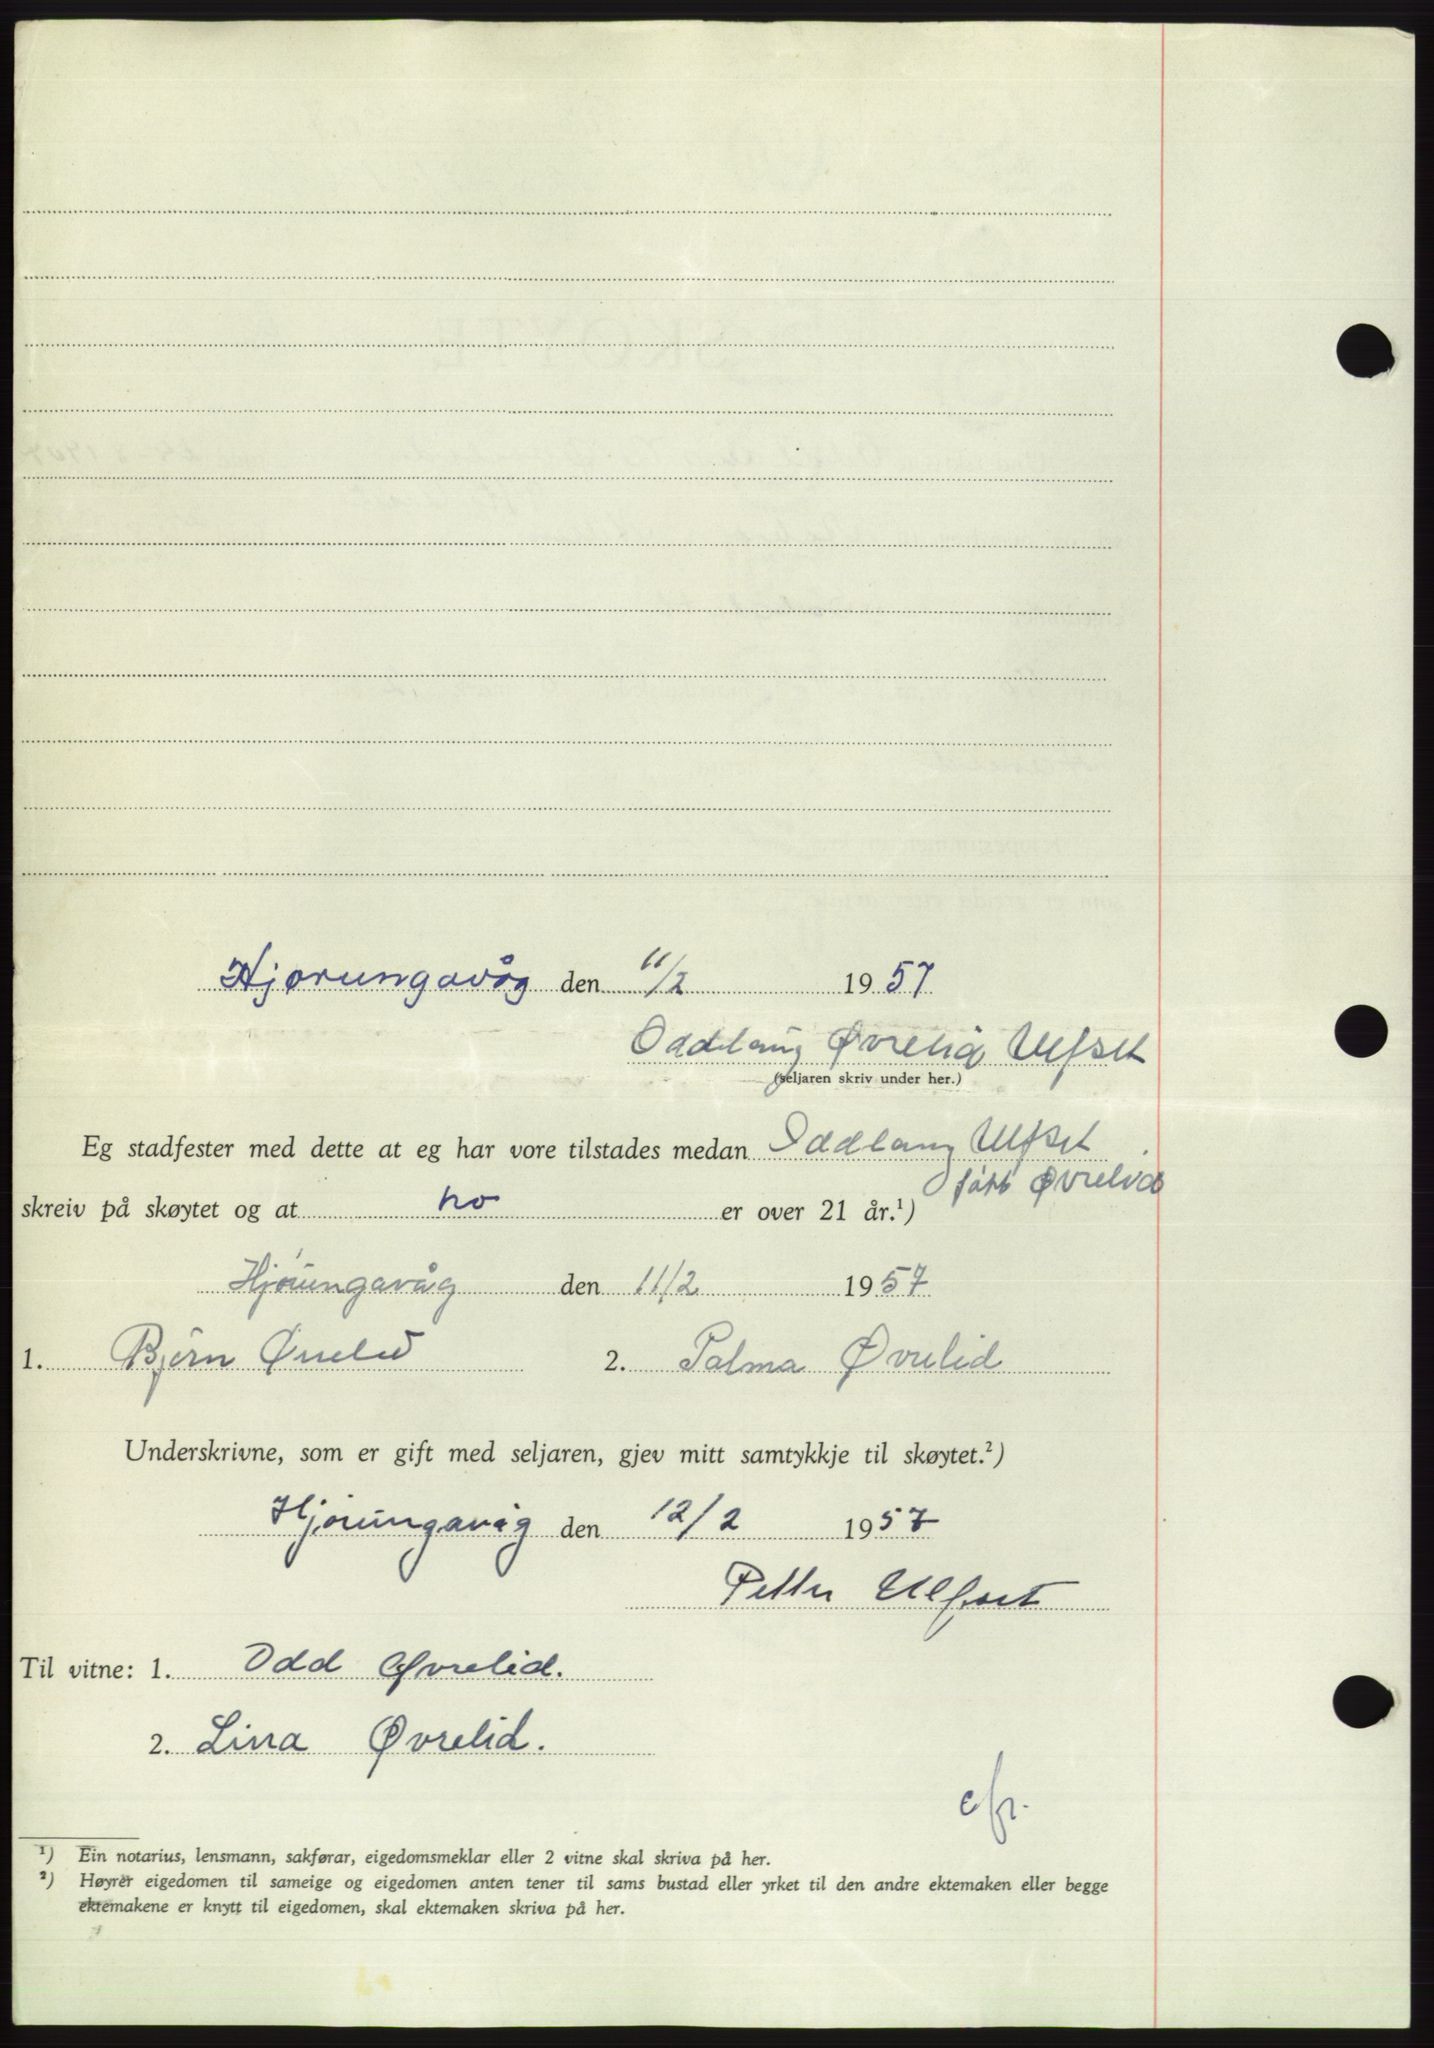 Hjørungavåg den 11/2 1957
Oddlaug Øvrelid Ulfset
(seljaren skriv under her.)
Eg stadfester med dette at eg har vore tilstades medan Oddlaug Ulfset
født Øvrelid
skreiv på skøytet og at ho er over 21 år.¹)
Hjørungavåg den 11/2 1957
1. Bjørn Øvrelid 2. Palma Øvrelid
Underskrivne, som er gift med seljaren, gjev mitt samtykkje til skøytet.²)
Hjørungavåg den 12/2 1957
Petter Ulfset
Til vitne: 1. Odd Øvrelid.
2. Lina Øvrelid.
cfr.
¹) Ein notarius, lensmann, sakførar, eigedomsmeklar eller 2 vitne skal skriva på her.
²) Høyrer eigedomen til sameige og eigedomen anten tener til sams bustad eller yrket til den andre ektemaken eller begge
ektemakene er knytt til eigedomen, skal ektemaken skriva på her.